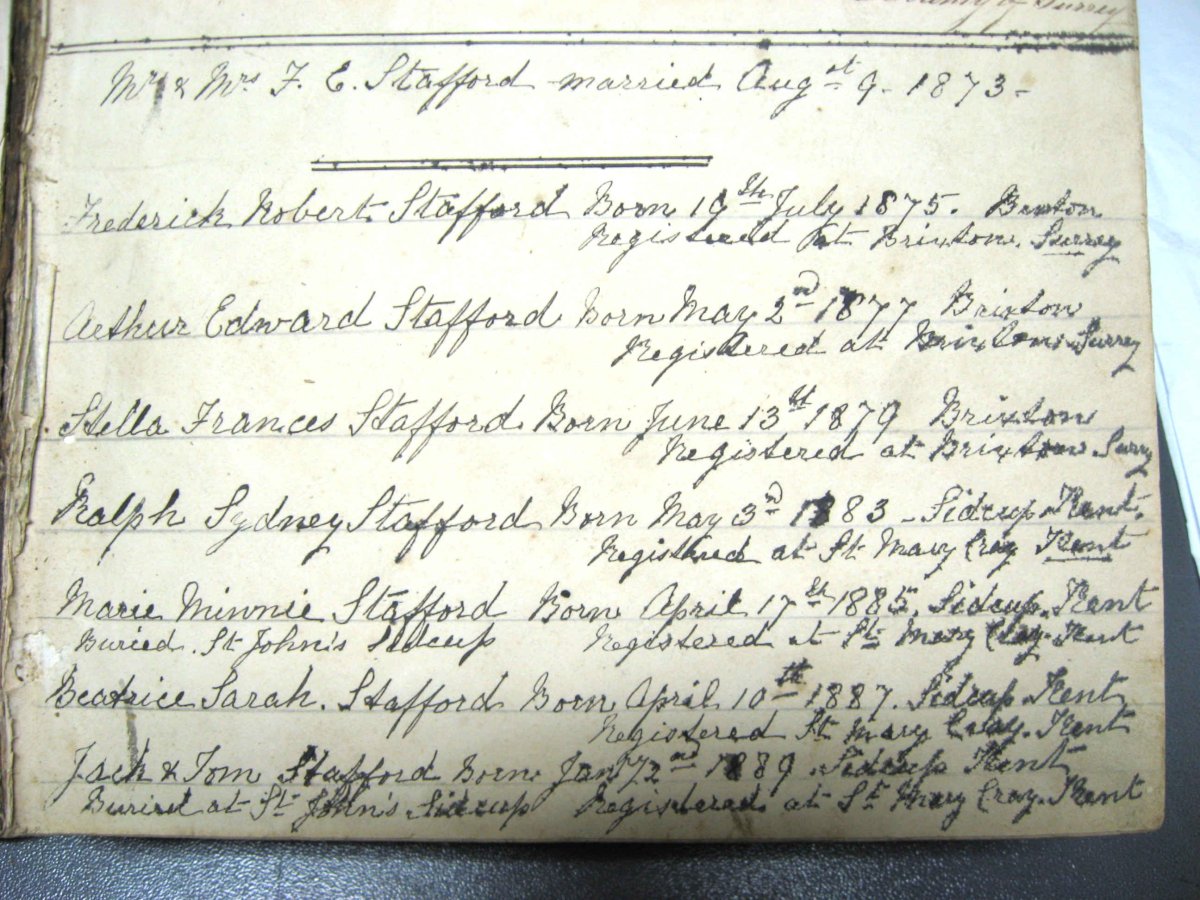 County of Surrey
Mr & Mrs F. E. Stafford married Augst 9 - 1873 -
Frederick Robert Stafford Born 19th July 1875. Brixton
Registered at Brixton. Surrey
Arthur Edward Stafford Born May 2nd 1877 Brixton
Registered at Brixton. Surrey
Stella Frances Stafford Born June 13th 1879 Brixton
Registered at Brixton. Surry
Ralph Sydney Stafford Born May 3rd 1883 - Sidcup. Kent.
Registered at St Mary Cray Kent
Marie Minnie Stafford Born April 17th 1885. Sidcup. Kent
Buried. St John's Sidcup Registered at St Mary Cray. Kent
Beatrice Sarah. Stafford Born April 10th 1887. Sidcup. Kent
Registered St Mary Cray. Kent
Jack & Tom Stafford Born. Jany 2nd 1889. Sidcup Kent
Buried at St John's Sidcup Registered at St Mary Cray. Kent